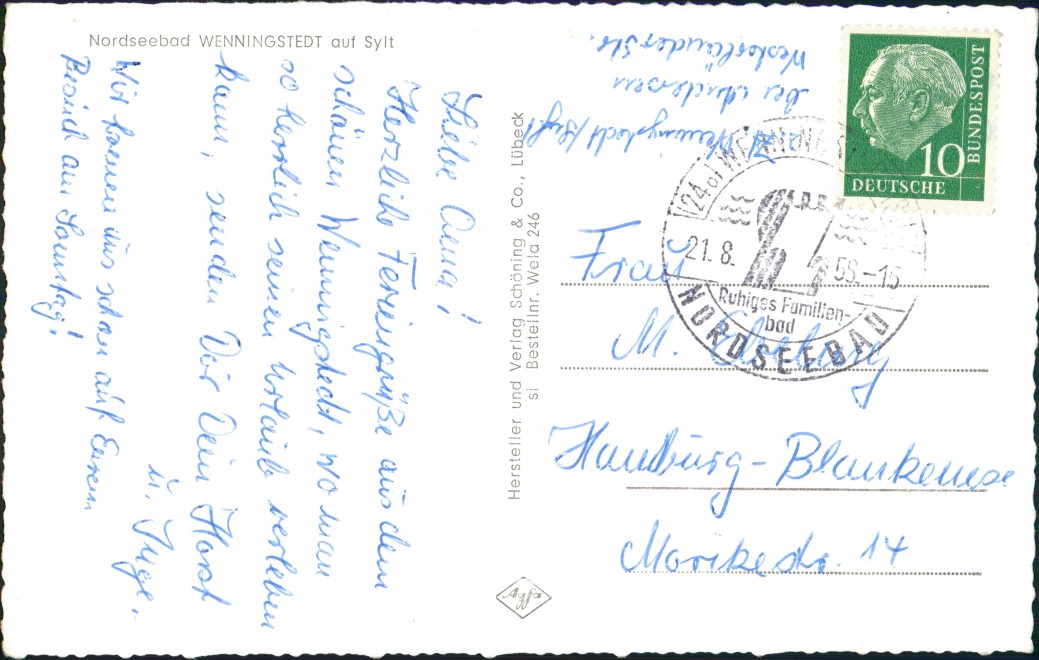 Nordseebad WENNINGSTEDT auf Sylt
Liebe Oma!
Herzliche Feriengrüße aus dem
schönen Wenningstedt, wo man
so herrlich seinen Urlaub verleben
kann, senden Dir Dein Horst
u. Inge.
Wir freuen uns schon auf Euren
Besuch am Sonntag!
Hersteller und Verlag Schöning & Co., Lübeck
si Bestellnr. Wela 246
Agfa
Wenningstedt/Sylt
bei Andersen
Westerländer Str.
10
DEUTSCHE
BUNDESPOST
(24b) WENNINGST
21. 8. 58.-15
Ruhiges Familien-
bad
NORDSEEBAD
Frau
M.
Hamburg-Blankenese
Mörikestr. 14